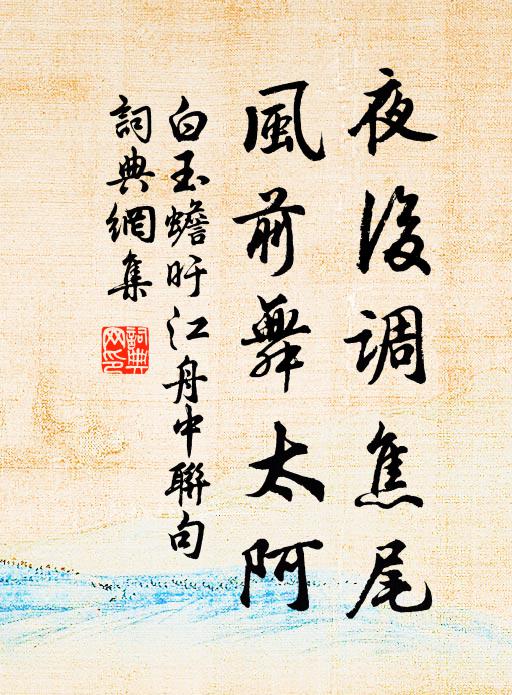 夜後調焦尾
風前舞太阿
白玉蟾旴江舟中聯句
詞典網集
詞典網印